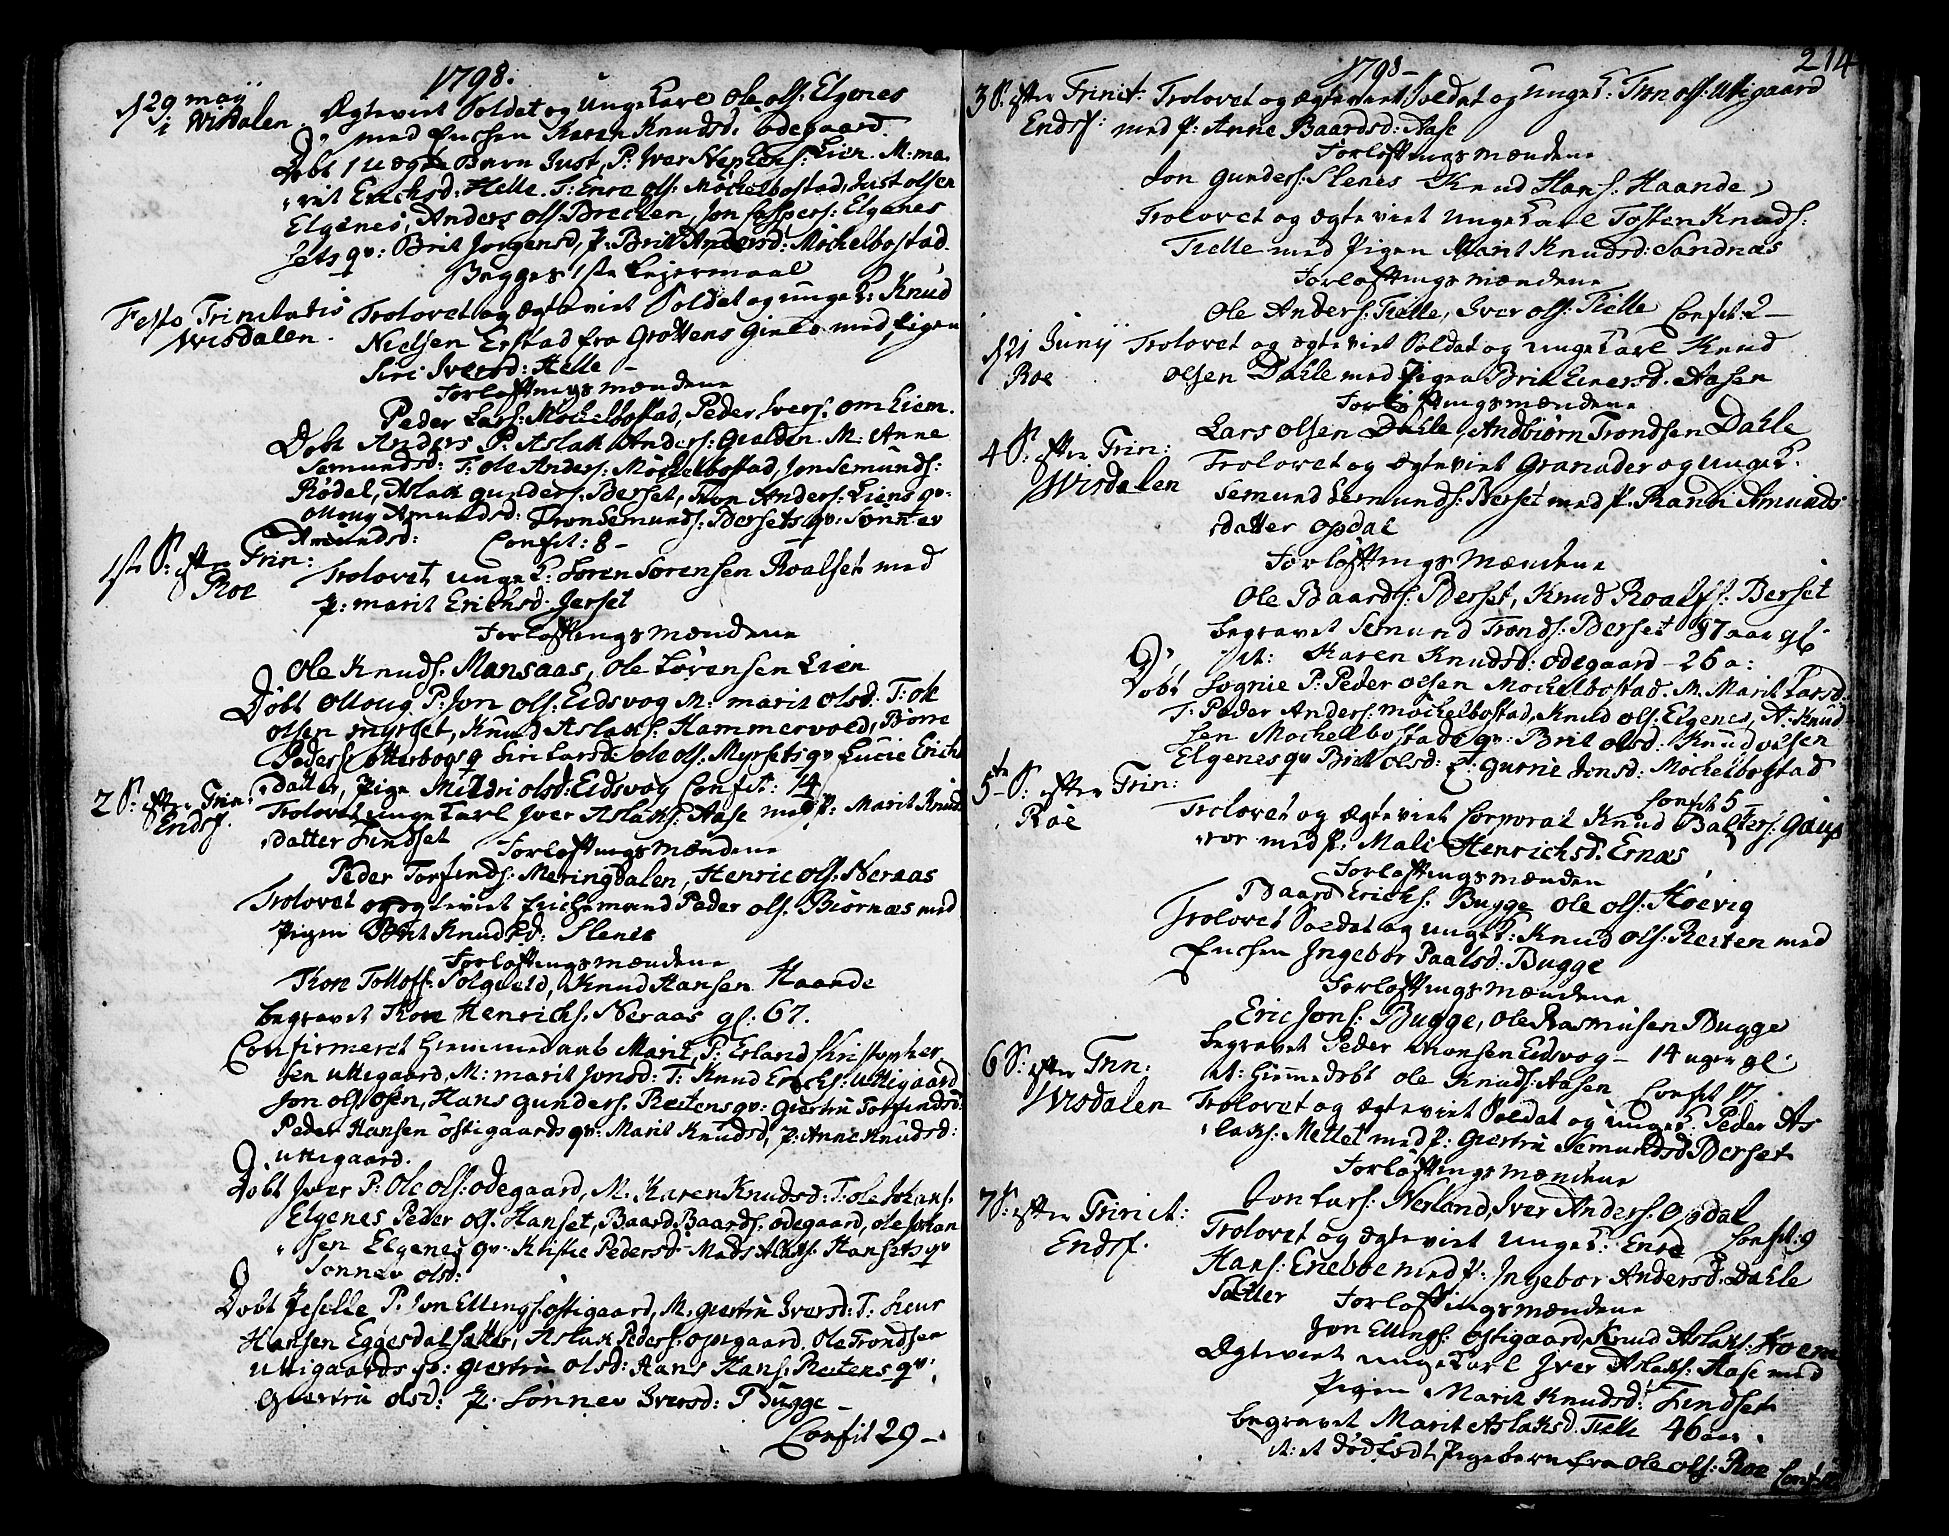 1798.
d 29 maÿ Ægteviet Soldat og Unge Karl Ole ols: Elgenes
i Wisdalen. med Enchen Karen Knudsd: ødegaard.
Døbt 1 uægte Barn Just, P: Iver Stephens: Lien. M: ma,
,rit Erichsd: Helle. T: Enre ols: Mochelbostad, Just olsen
Elgenes, Anders ols: Brechen, Jon Caspers: Elgenes
sets qv: Brit Jorgensd, P: Brit Andersd: Mochelbostad.
Begges 1ste Lejermaal
Festo Trinitatis Trolovet og Ægteviet Soldat og unge K: Knud
Wisdalen. Nielsen Erstad fra Grøttens Gield med Pigen
Siri Iversd: Helle –
Forløftningsmændene
Peder Lars: Mochelbostad, Peder Ivers: omliem.
Døbt Anders P: Aslak Anders: Gialden. M: Anne
Semundsd: T: ole Anders: Mochelbostad, Jon Semunds:
Rødal, Aslak gunders: Berset, Tron Anders: Liens qv:
olloug Amundsd: Tron Semunds: Bersets qv: Sønnev
Amundsd: Confit: 8 –
1ste S: efter Trin: Trolovet unge K: Soren Sorensen Roalset med
Roe P: marit Erichsd: Jerset
Forløftningsmændene
Ole Knuds: Mansaas, Ole Sørensen Lien
Døbt olloug P: Jon ols: Eidsvog M: marit olsd: T: ole
olsen myrset, Knud Aslaks: Hammervold, Borre
Peders: otterbog q Siri Larsd: ole ols: Myrsets qv Lucie Erichs
,datter, Pige Mildri olsd: Eidsvog Confit: 14
2 S: efter Trin: Trolovet unge Karl Iver Aslaks: Aase med P: Marit Knuds
Eridsf. ,datter Lindset Forløftningsmændene
Peder Torfinds: Meringdalen, Henric ols: Neraas
Trolovet og Ægteviet Enchemand Peder ols: Biørnaas med
Pigen Brit Knudsd: Slenes
Forløftningsmændene
Thore Tollofs: Solgield, Knud Hansen Haande
begravet Thore Henrichs: Neraas gl: 67.
Confirmeret Hiemmedaab Marit, P: Erland Christopher
sen Uttigaard, M: marit Jonsd: T: Knud Erichs: Uttigaard
Jon ols: osen, Hans gunders: Reitens qv: Giertru Torfindsd:
Peder Hansen østigaards qv: Marit Knudsd, P: Anne Knudsd:
,uttigaard.
Døbt Iver P: Ole ols: ødegaard, M. Karen Knudsd: T: ole Johans:
Elgenes Peder ols: Hanset, Baard Baards: ødegaard, ole Johan
,sen Elgenes qv: Kistie Pedersd: Mads Aslaks: Hansets qv
Sonnev olsd:
Døbt Peselle P: Jon Ellings: østigaard, M: Giertru Iversd: T: Knut
Hansen Eggesdalsætter, Aslak Peders: opigaard, Ole Trondsen
Uttigaards qv: Giertru olsd: Hans Hans: Reitens qv:
Giertru olsd: P: Sønnev Iversd: Bugge –
Confit 29 –
214
1798 –
3 S: efter Trinit: Trolovet og Ægteviet Soldat og unge K: Tron ols: Uttigaard
Endsf: med P: Anne Baardsd: Aase
Forløftningsmændene
Jon gunders: Slenes Knud Hans: Haande,
Trolovet og Ægteviet unge Karl Tosten Knuds:
Tielle med Pigen Marit Knudsd: Sandnæs
Forløftningsmændene
Ole Anders: Tielle, Iver ols: Tielle Confit: 2 –
d 21 Junÿ Trolovet og Ægteviet Soldat og unge Karl Knud
Roe olsen Dahle med Pigen Brit Einersd: Aasen
Forløftningsmændene
Lars olsen Dahle, Andbiørn Trondsen Dahle
4 S: efter Trin: Trolovet og Ægteviet Granader og unge K:
Wisdalen Semund Semunds: Berset med P: Randi Amunds
,datter opdal
Forløftningsmændene
Ole Baards: Berset, Knud Roalfs: Berset
begravet Semund Tronds: Berset 87 aar gl:
it: Karen Knudsd: ødegaard – 26 a:
Døbt Sognie P: Peder olsen Mochelbostad. M. Marit Larsd:
T: Peder Anders: mochelbostad, Knud ols: Elgenes, A: Knud
sen Mochelbostads qv: Brit olsd: Knud olsen
Elgenes qv Brit olsd: P: Gurrie Jonsd: Mochelbostad
Confit 5
5te S: efter Trin: Trolovet og Ægteviet Corporal Knud Balters: Gaup
Roe ,ror med P: Mali Henrichsd: Ernæs
Forløftningsmænden
Baard Erichs: Bugge Ole ols: Høevig
Trolovet Soldat og unge K: Knud ols: Reiten med
Enchen Ingebor Paalsd: Bugge
Forløftningsmændene
Eric Jons: Bugge, Ole Rasmusen Bugge
begravet Peder monsen Eidsvog – 14 uger gl:
it: hiemmedøbt ole Knuds: Aasen Confit 17.
6 S: efter Trin: Trolovet og Ægteviet Soldat og unge K: Peder As
Wisdalen ,laks: Mettet med P: Giertru Semundsd Berset
Forløftningsmændene
Jon Lars: Nerland, Iver Anders: Opdal
Confit: 9
7 S: efter Trinit: Trolovet og Ægteviet unge K: Enre
Endsf. Hans: Eneboe med P: Ingebor Andersd: Dahle
Sætter Forløftningsmændene
Jon Ellings: østigaard, Knud Aslaks: Hoem
Ægteviet unge Karl Iver Aslaks: Aase med
Pigen Marit Knudsd: Lindset
begravet Marit Aslaksd: Tielle 46 aar.
it: it dødfødt Pigebarn fra ole ols: Roe